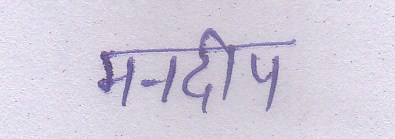 मनदीप